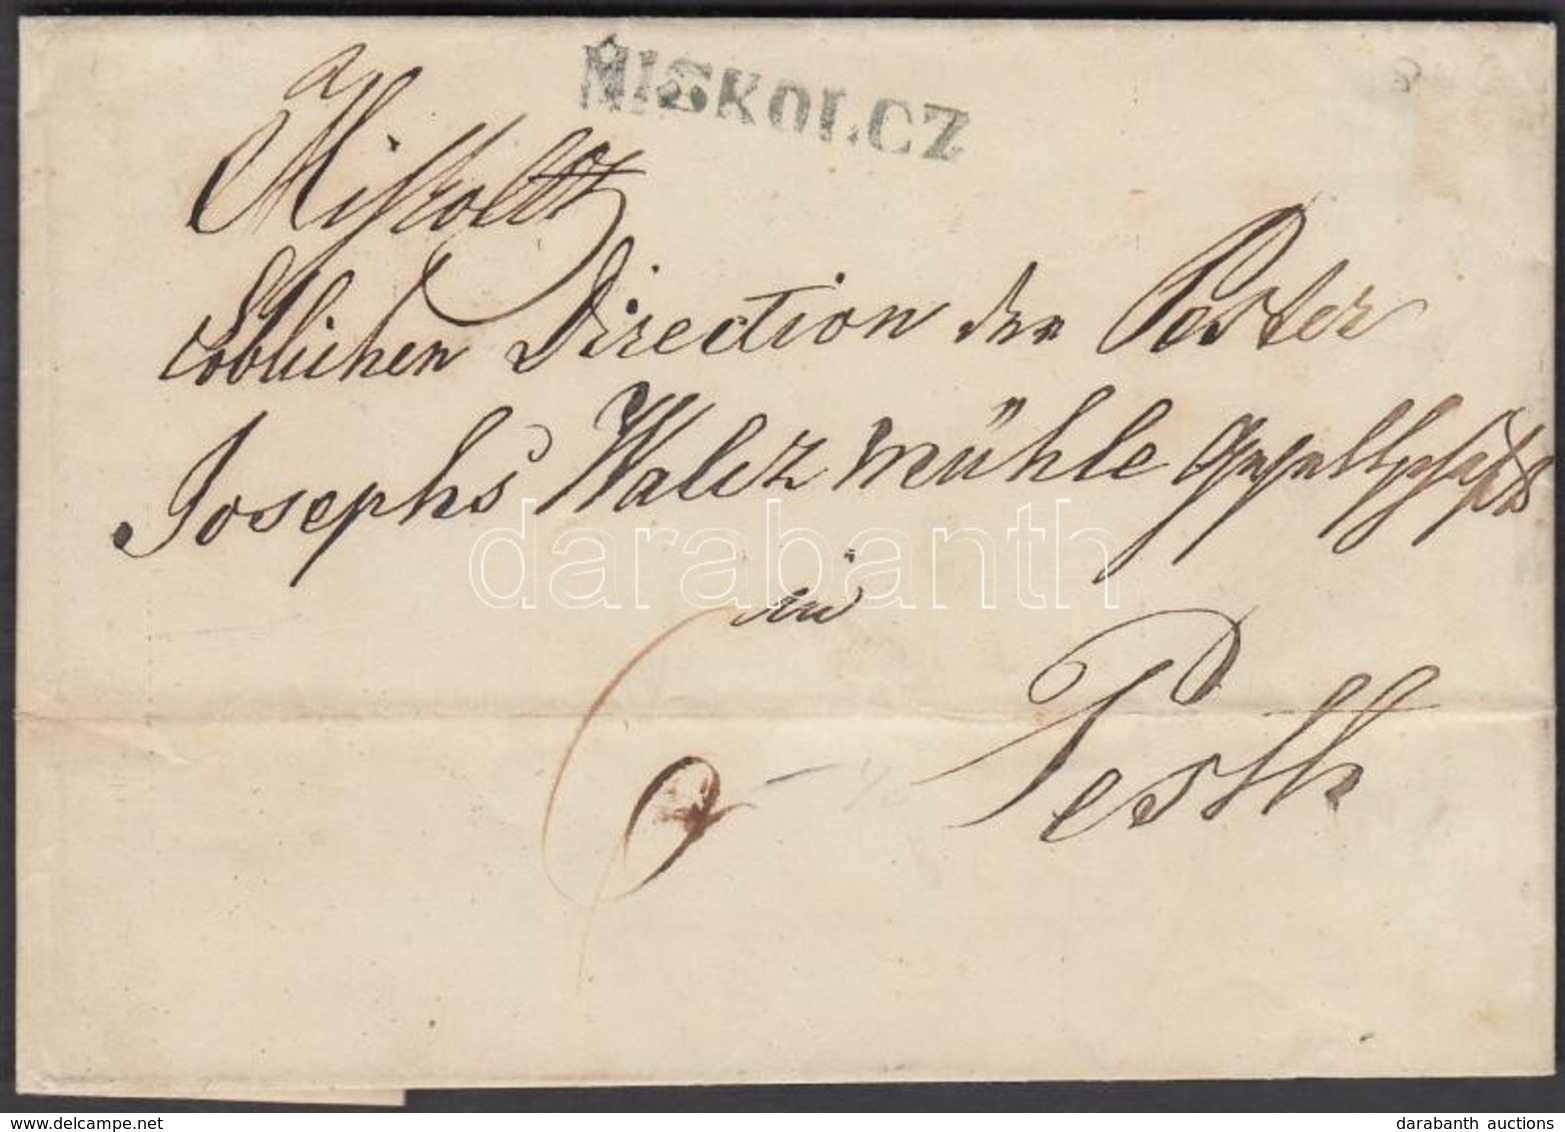 MISKOLCZ
a
Miskoltz
Löblichen Direction der Pester
Josephs Walzmühle Gesellschaft
in
Pesth
6
darabanth
darabanth auctions